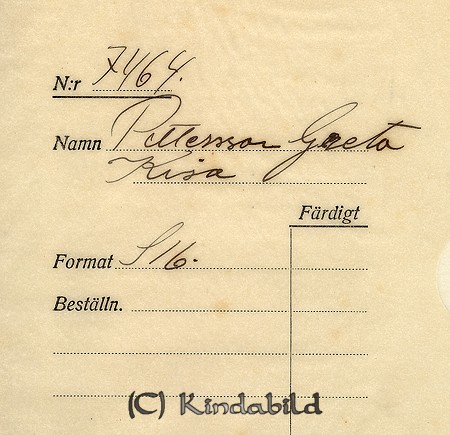 N:r 7464.
Namn Pettersson Greta
Kisa
Färdigt
Format S 16.
Beställn.
(C) Kindabild